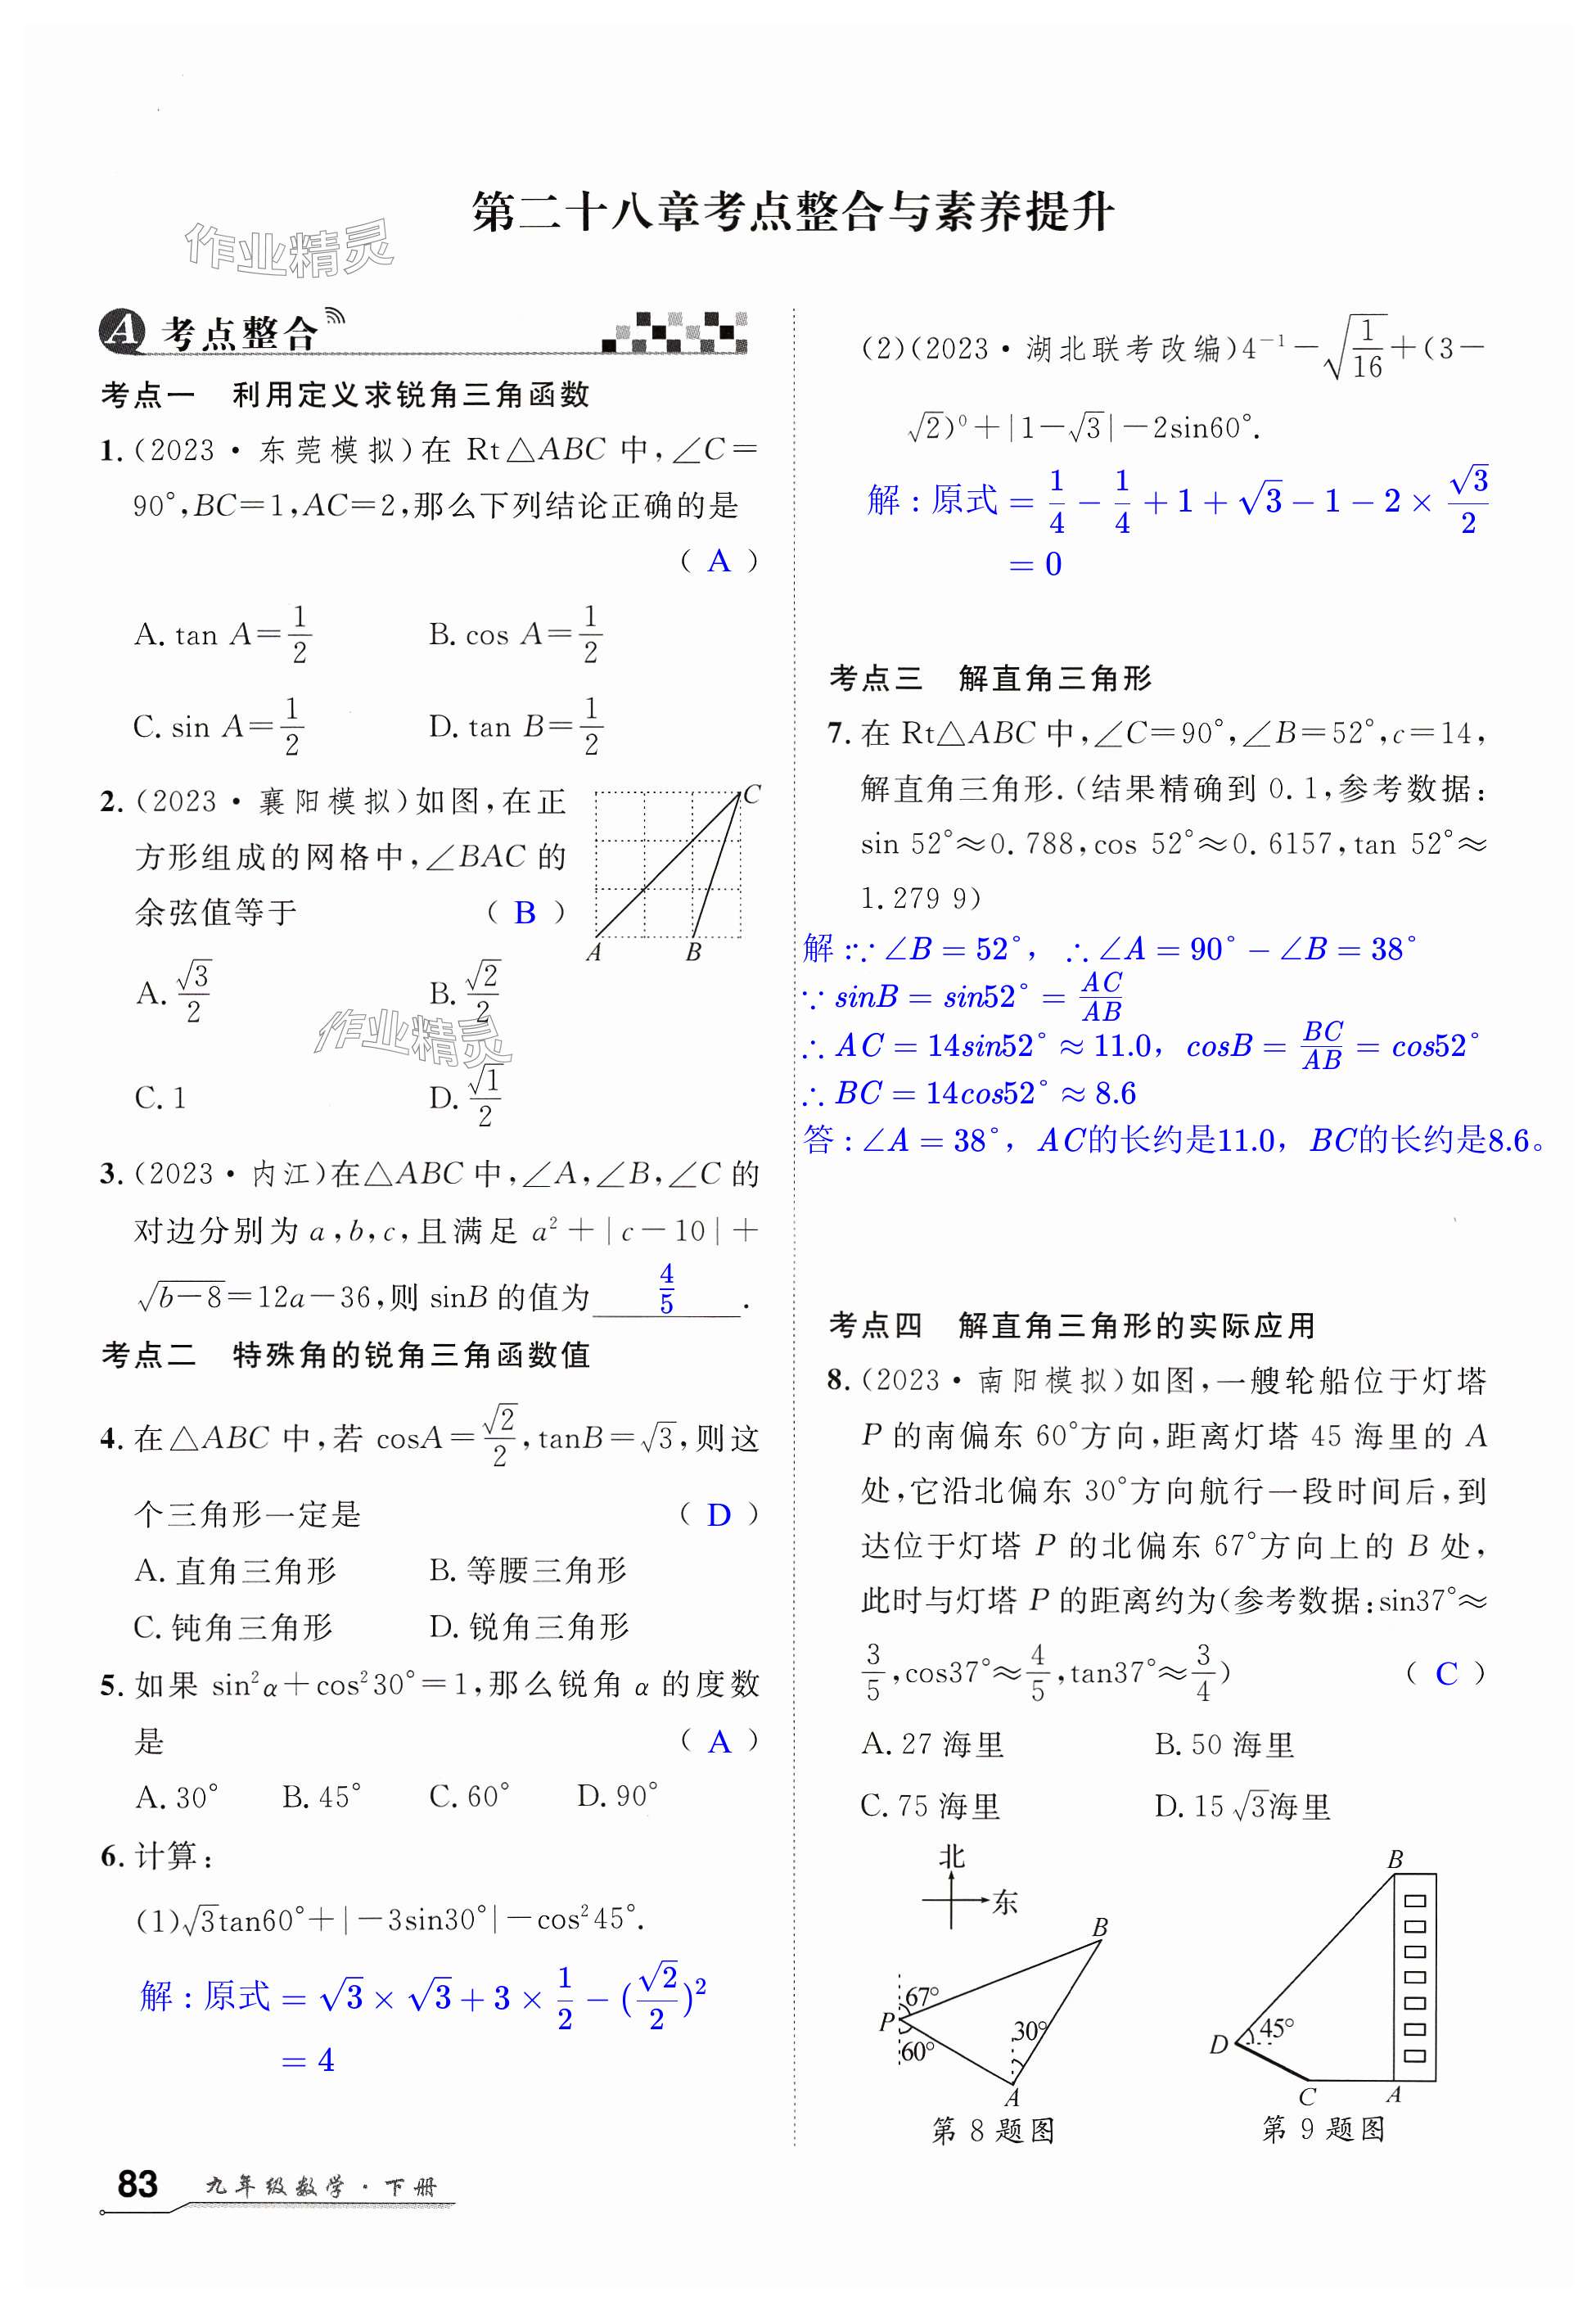 第二十八章考点整合与素养提升
作业精灵
A 考点整合
考点一 利用定义求锐角三角函数
1.(2023·东莞模拟)在 Rt△ABC 中,∠C=
90°,BC=1,AC=2,那么下列结论正确的是
( A )
A. tan A=1/2 B. cos A=1/2
C. sin A=1/2 D. tan B=1/2
2.(2023·襄阳模拟)如图,在正
方形组成的网格中,∠BAC 的
余弦值等于 ( B )
C
A B
A. √3/2 B. √2/2
作业精灵
C. 1 D. √1/2
3.(2023·内江)在△ABC 中,∠A,∠B,∠C 的
对边分别为 a,b,c,且满足 a²+|c-10|+
√(b-8)=12a-36,则 sinB 的值为 4/5 .
考点二 特殊角的锐角三角函数值
4. 在△ABC 中,若 cosA=√2/2,tanB=√3,则这
个三角形一定是 ( D )
A. 直角三角形 B. 等腰三角形
C. 钝角三角形 D. 锐角三角形
5. 如果 sin²α+cos²30°=1,那么锐角 α 的度数
是 ( A )
A. 30° B. 45° C. 60° D. 90°
6. 计算:
(1)√3tan60°+|-3sin30°|-cos²45°.
解:原式=√3×√3+3×1/2-(√2/2)²
=4
83 九年级数学·下册
(2)(2023·湖北联考改编)4⁻¹-√(1/16)+(3-
√2)⁰+|1-√3|-2sin60°.
解:原式=1/4-1/4+1+√3-1-2×√3/2
=0
考点三 解直角三角形
7. 在 Rt△ABC 中,∠C=90°,∠B=52°,c=14,
解直角三角形.(结果精确到 0.1,参考数据:
sin 52°≈0.788,cos 52°≈0.6157,tan 52°≈
1.279 9)
解:∵∠B=52°, ∴∠A=90°-∠B=38°
∵sinB=sin52°=AC/AB
∴AC=14sin52°≈11.0, cosB=BC/AB=cos52°
∴BC=14cos52°≈8.6
答:∠A=38°, AC的长约是11.0, BC的长约是8.6。
考点四 解直角三角形的实际应用
8.(2023·南阳模拟)如图,一艘轮船位于灯塔
P 的南偏东 60°方向,距离灯塔 45 海里的 A
处,它沿北偏东 30°方向航行一段时间后,到
达位于灯塔 P 的北偏东 67°方向上的 B 处,
此时与灯塔 P 的距离约为(参考数据:sin37°≈
3/5,cos37°≈4/5,tan37°≈3/4) ( C )
A. 27 海里 B. 50 海里
C. 75 海里 D. 15√3海里
北
东
B
67°
P
60°
30°
A
第 8 题图
B
D 45°
C A
第 9 题图